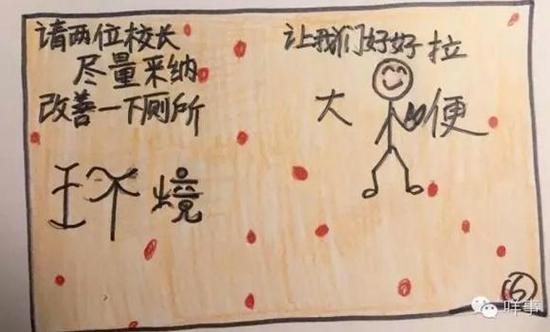 请两位校长
尽量采纳
改善一下厕所
环境
让我们好好拉
大便
咩事